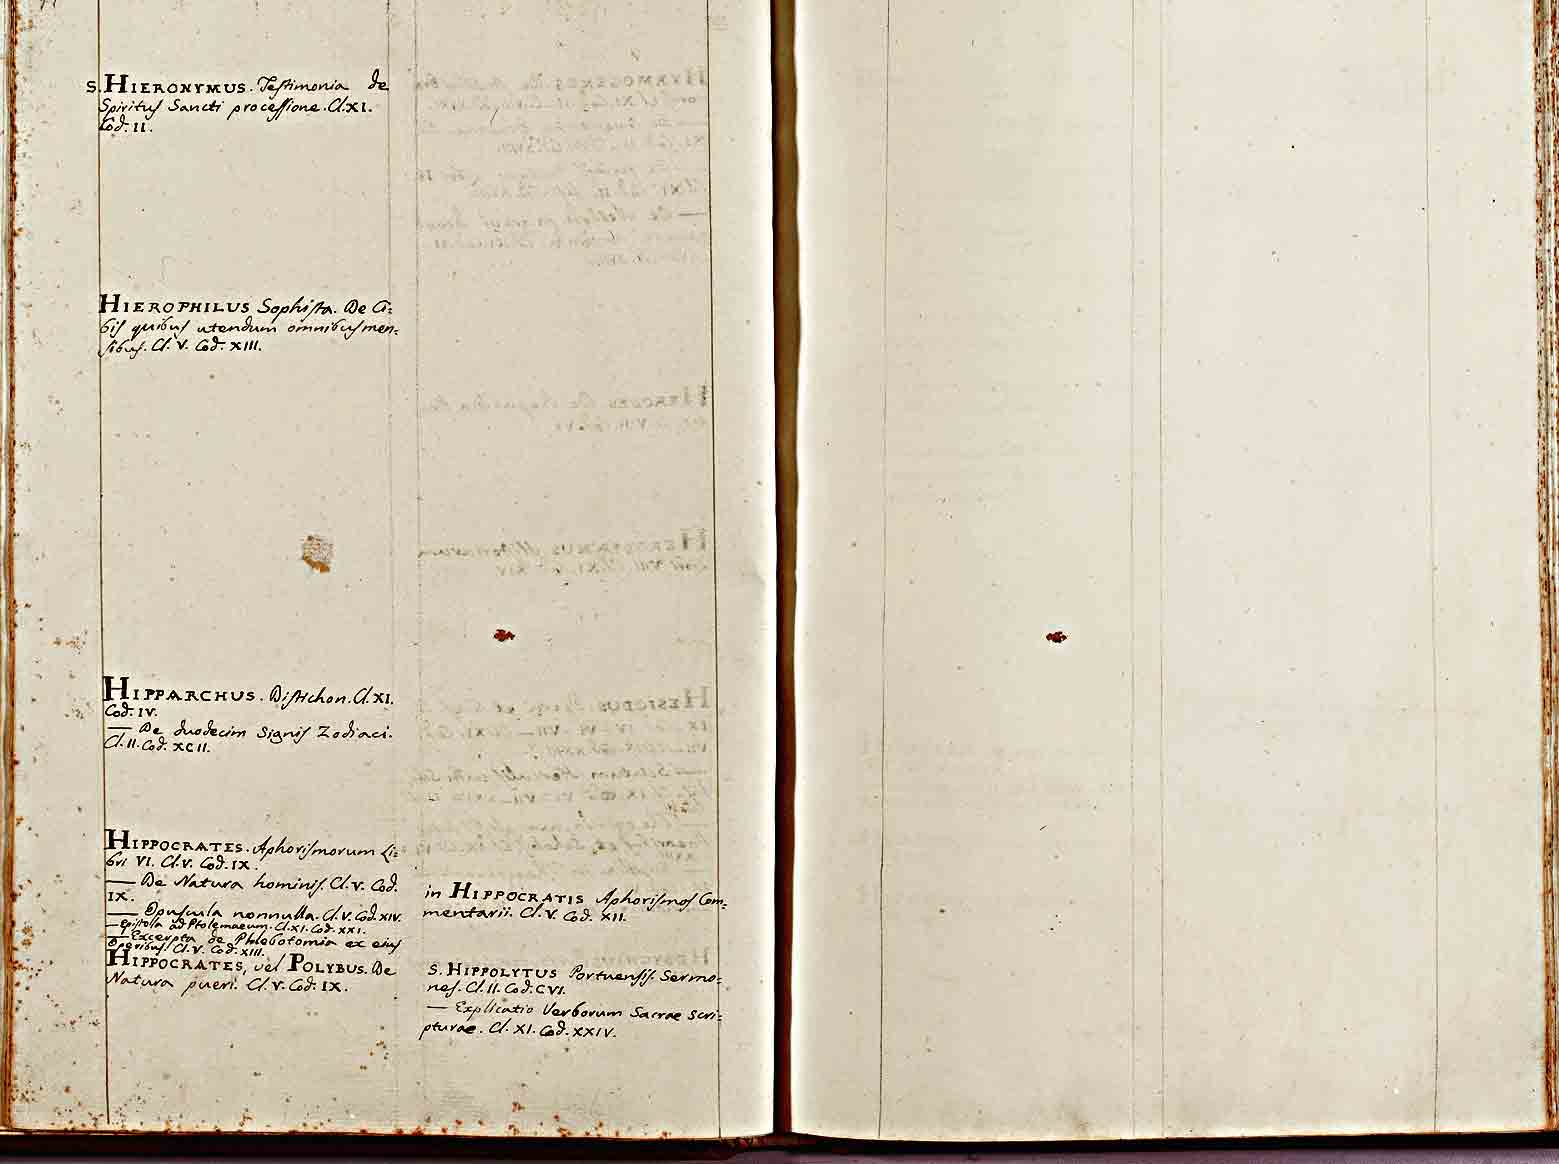 S. HIERONYMUS. Testimonia de
Spiritus Sancti processione. Cl. XI.
Cod. II.
HIEROPHILUS Sophista. De Ci:
bis quibus utendum omnibus men:
sibus. Cl. V. Cod. XIII.
HIPPARCHUS. Distichon. Cl. XI.
Cod. IV.
— De duodecim signis Zodiaci.
Cl. II. Cod. XCII.
HIPPOCRATES. Aphorismorum Li:
bri VI. Cl. V. Cod. IX.
— De Natura hominis. Cl. V. Cod.
IX.
— Opuscula nonnulla. Cl. V. Cod. XIV.
— Epistola ad Ptolemaeum. Cl. XI. Cod. XXI.
— Excerpta de Phlebotomia ex eius
Operibus. Cl. V. Cod. XIII.
HIPPOCRATES, vel POLYBUS. De
Natura pueri. Cl. V. Cod. IX.
in HIPPOCRATIS Aphorismos Com:
mentarii. Cl. V. Cod. XII.
S. HIPPOLYTUS Portuensis. Sermo:
nes. Cl. II. Cod. CVI.
— Explicatio Verborum Sacrae Scri:
pturae. Cl. XI. Cod. XXIV.